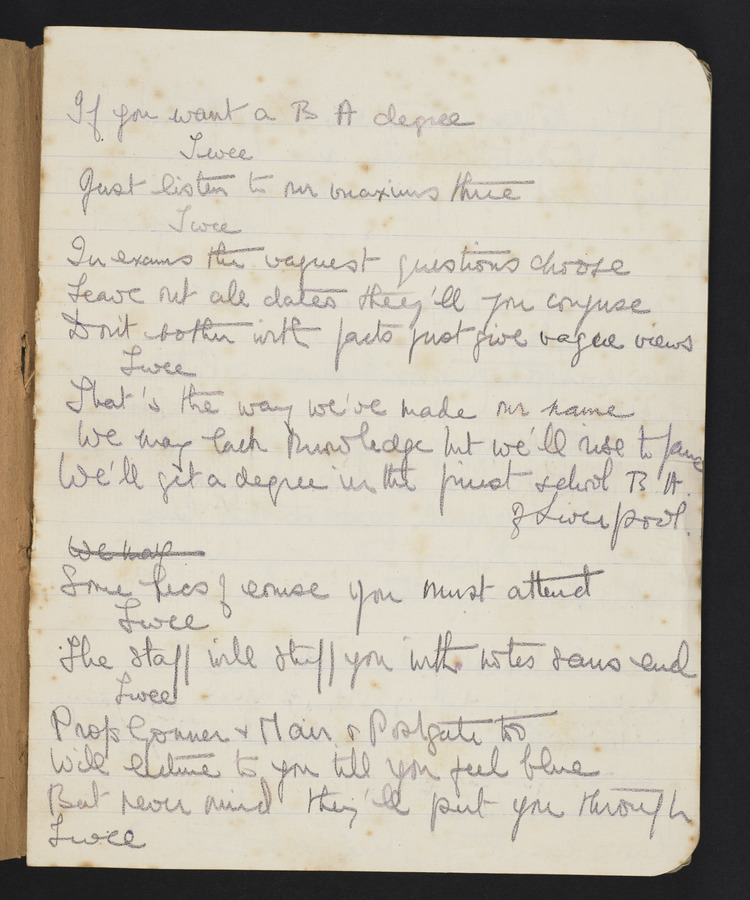 If you want a B A degree
Twee
Just listen to our maxims three
Twee
In exams the vaguest questions choose
Leave out all dates they'll you confuse
Don't bother with facts just give vague views
Twee
That's the way we've made our name
We may lack knowledge but we'll rise to fame
We'll get a degree in the finest school B A.
of Liverpool.
We may
Some lecs of course you must attend
Twee
The staff will stuff you with notes sans end
Twee
Profs Conner & Mair & Postgate too
Will lecture to you till you feel blue
But never mind they'll put you through
Twee